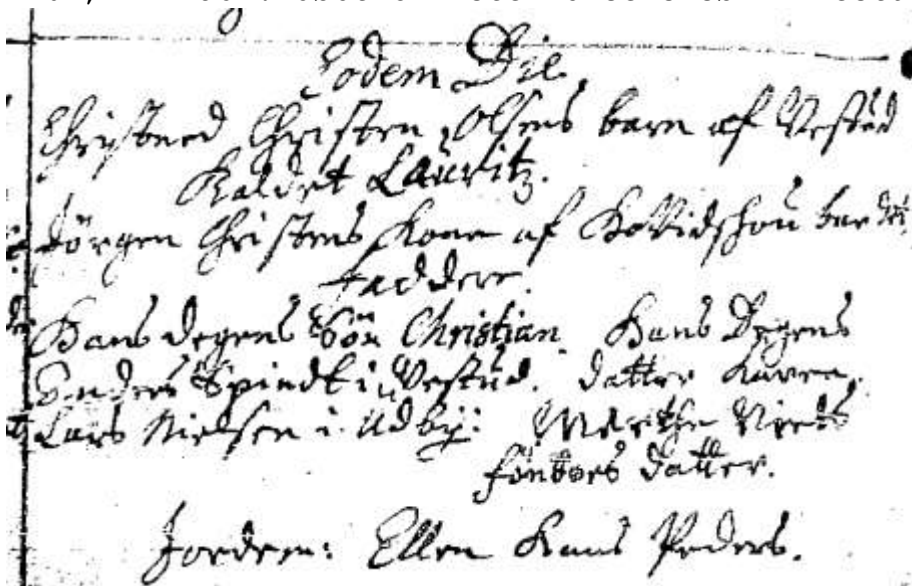 Eodem Die
Christned Christen Olsens barn af Vestud
Kaldet Lauritz.
Jörgen Christens Kone af bar det,
Faddere.
Hans Degens Sön Christian. Hans Degens
Anders Spindel i Vestud. datter Karen.
Lars Nielsen i Udbÿ: Marthe Niels
datter.
Jordem: Ellen Hans Peders.